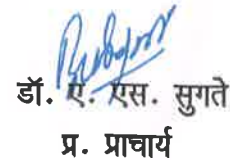 डॉ. ए. एस. सुगते
प्र. प्राचार्य